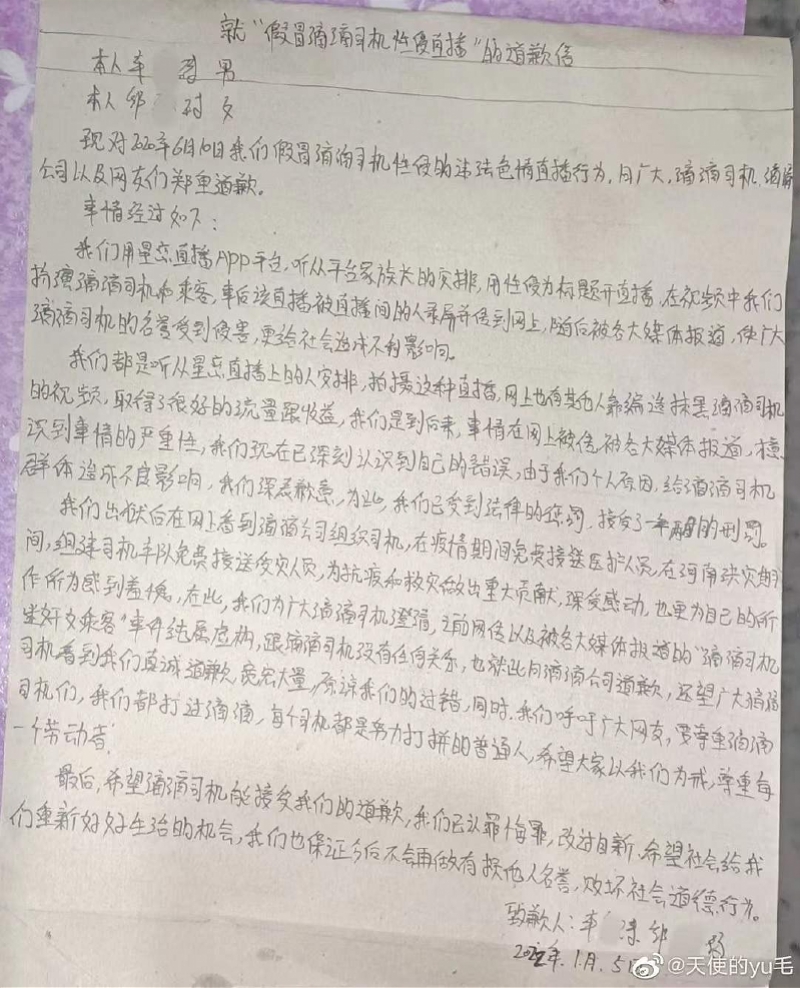 就“假冒滴滴司机性侵直播”的道歉信
本人车 男
本人邹 女
现对2020年6月10日我们假冒滴滴司机性侵的违法色情直播行为,向广大,滴滴司机,滴滴
公司以及网友们郑重道歉。
事情经过如下:
我们用星恋直播APP平台,听从平台家族长的安排,用性侵为标题开直播,在视频中我们
扮演滴滴司机和乘客,事后该直播被直播间的人录屏并传到网上,随后被各大媒体报道,使广大
滴滴司机的名誉受到侵害,更给社会造成不利影响。
我们都是听从星恋直播上的人安排,拍摄这种直播,网上也有其他人靠编造抹黑滴滴司机
的视频,取得了很好的流量跟收益,我们是到后来,事情在网上被传,被各大媒体报道,才意
识到事情的严重性,我们现在已深刻认识到自己的错误,由于我们个人原因,给滴滴司机
群体造成不良影响,我们深表歉意,为此,我们已受到法律的惩罚,接受了一年 的刑罚。
我们出狱后在网上看到滴滴公司组织司机,在疫情期间免费接送医护人员,在河南洪灾期
间,组建司机车队免费接送受灾人员,为抗疫和救灾做出重大贡献,深受感动,也更为自己的所
作所为感到羞愧,在此,我们为广大滴滴司机澄清,之前网传以及被各大媒体报道的“滴滴司机
迷奸女乘客”事件纯属虚构,跟滴滴司机没有任何关系,也就此向滴滴公司道歉,还望广大滴滴
司机看到我们真诚道歉,宽宏大量,原谅我们的过错,同时,我们呼吁广大网友,要尊重滴滴
司机们,我们都打过滴滴,每个司机都是努力打拼的普通人,希望大家以我们为戒,尊重每
一个劳动者!
最后,希望滴滴司机能接受我们的道歉,我们已认罪悔罪,改过自新,希望社会给我
们重新好好生活的机会,我们也保证今后不会再做有损他人名誉,败坏社会道德行为。
致歉人:车 邹
2022年.1月.5日
@天使的yu毛